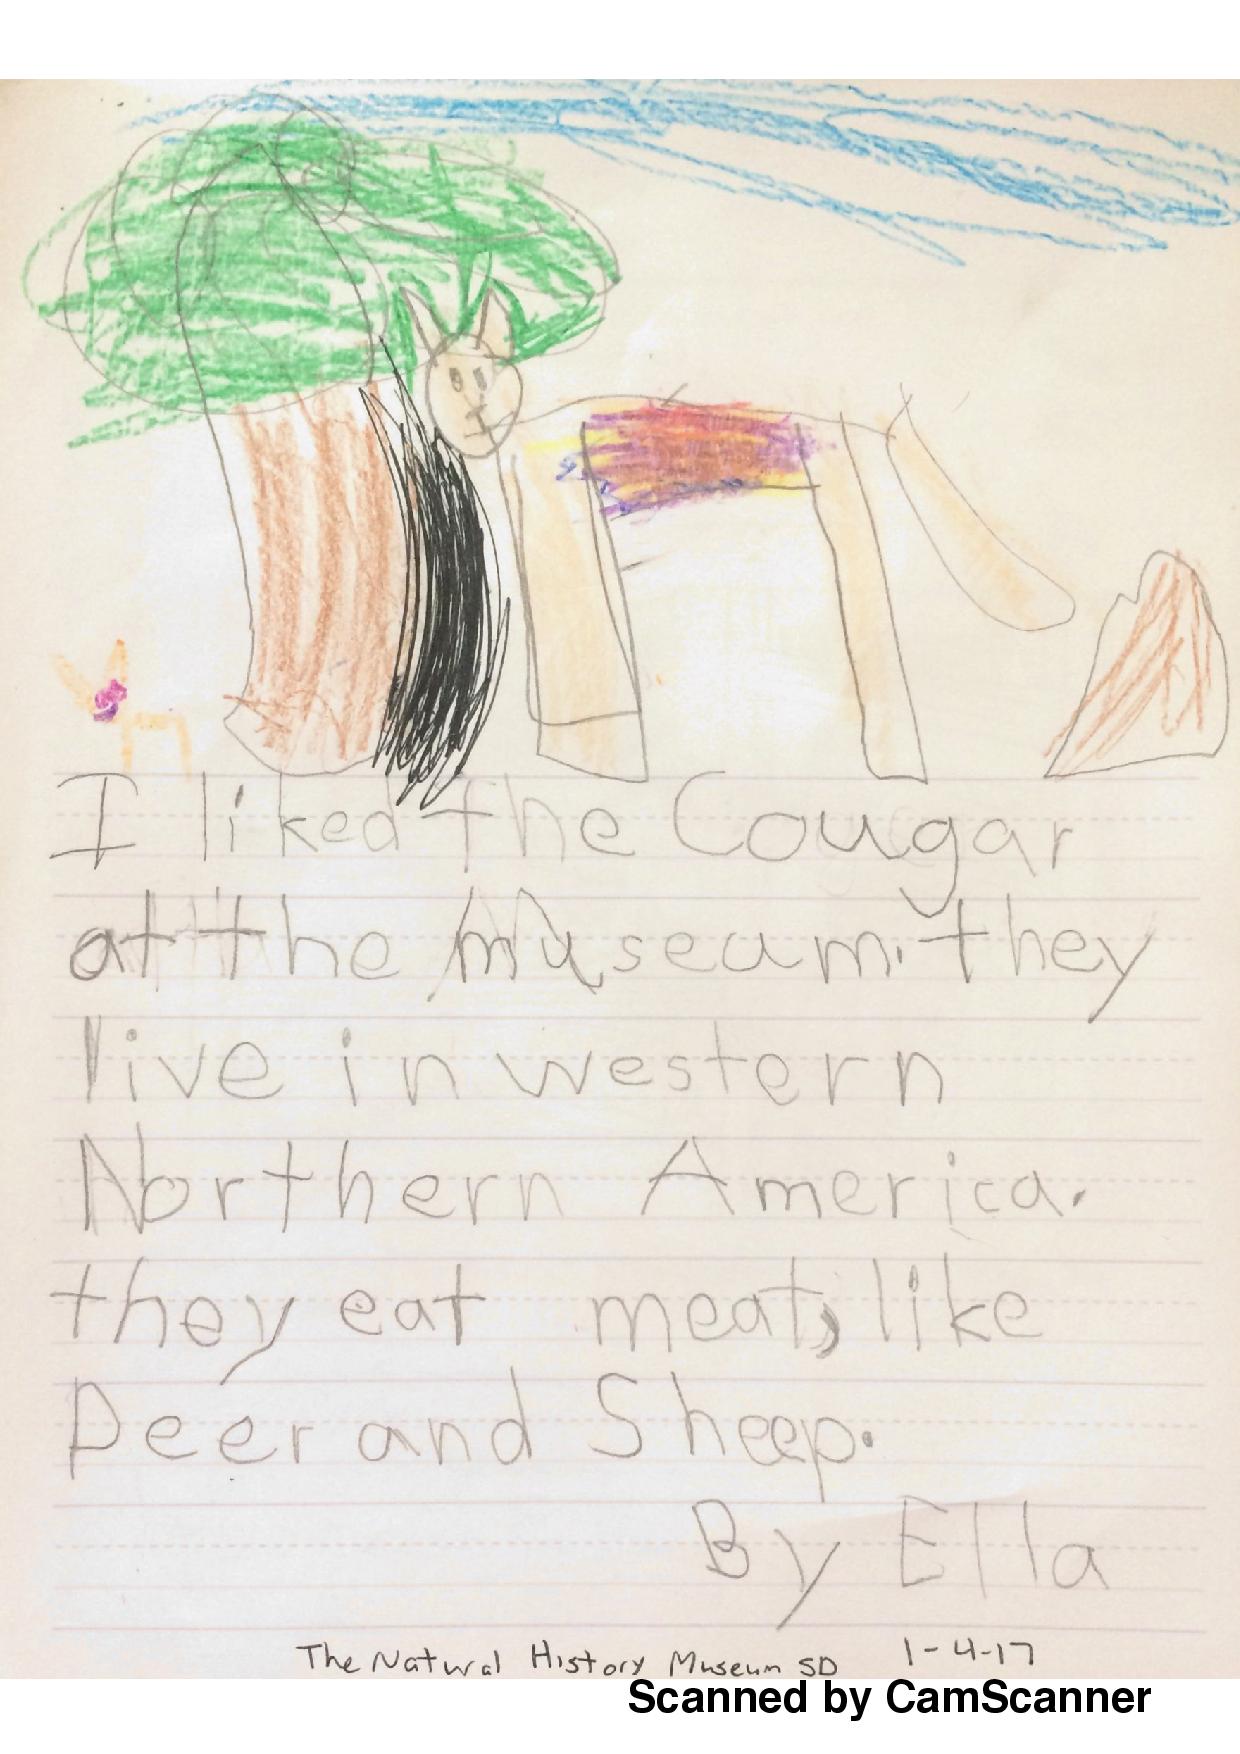 I liked the Cougar
at the Museum. they
live in western
Northern America.
they eat meat, like
Deer and Sheep.
By Ella
The Natural History Museum SD 1-4-17
Scanned by CamScanner